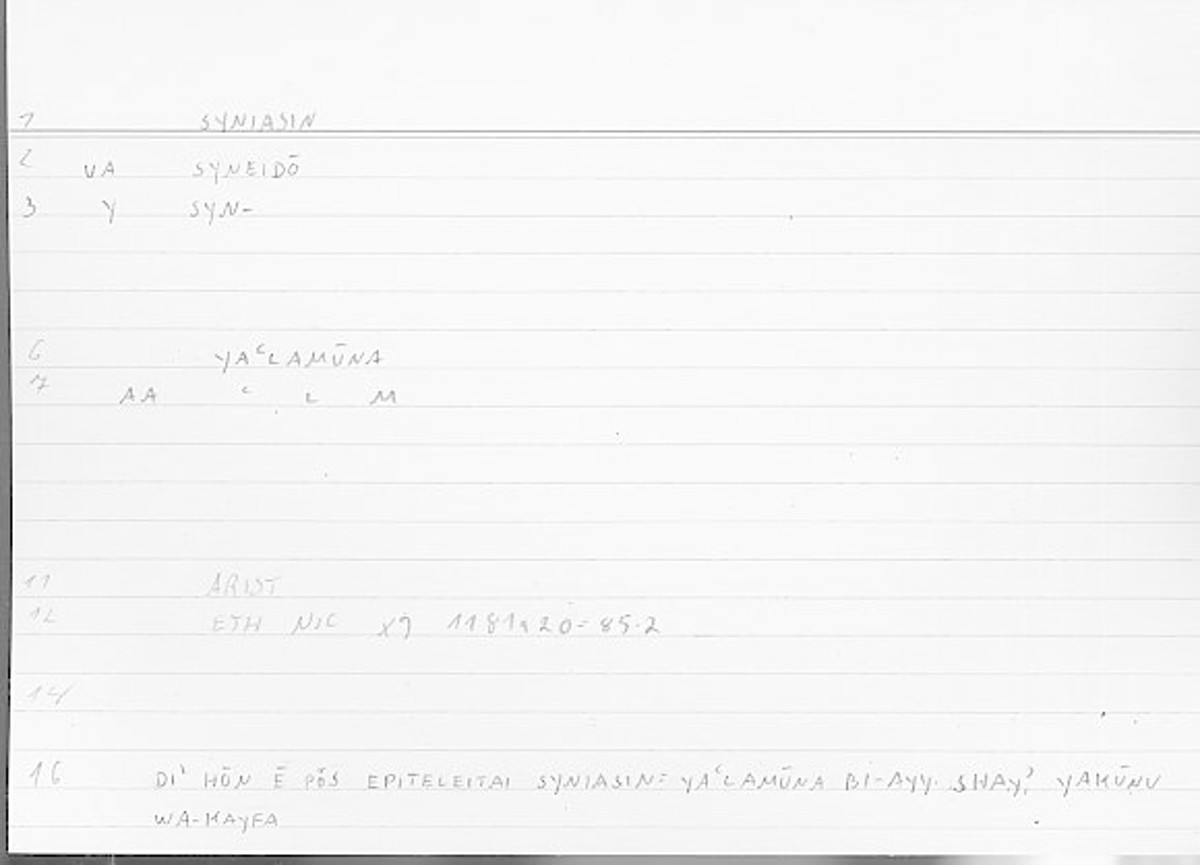 1 SYNIASIN
2 VA SYNEIDŌ
3 Y SYN-
6 YAʿLAMŪNA
7 AA ʿ L M
11 ARIST
12 ETH NIC X9 1181a20=85.2
14
16 DI' HŌN Ē PŌS EPITELEITAI SYNIASIN= YAʿLAMŪNA BI-AYY. SHAYʾ YAKŪNU
WA-KAYFA